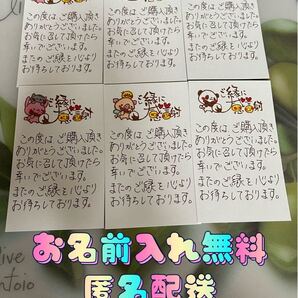 この度はご購入頂き
ありがとうございました。
お気に召して頂けたら
幸いでございます。
またのご縁を心より
お待ちしております。
この度はご購入頂き
ありがとうございました。
お気に召して頂けたら
幸いでございます。
またのご縁を心より
お待ちしております。
この度はご購入頂き
ありがとうございました。
お気に召して頂けたら
幸いでございます。
またのご縁を心より
お待ちしております。
ご縁に
感謝
この度はご購入頂き
ありがとうございました。
お気に召して頂けたら
幸いでございます。
またのご縁を心より
お待ちしております。
ご縁に
感謝
この度はご購入頂き
ありがとうございました。
お気に召して頂けたら
幸いでございます。
またのご縁を心より
お待ちしております。
ご縁に
感謝
この度はご購入頂き
ありがとうございました。
お気に召して頂けたら
幸いでございます。
またのご縁を心より
お待ちしております。
お名前入れ無料
匿名配送